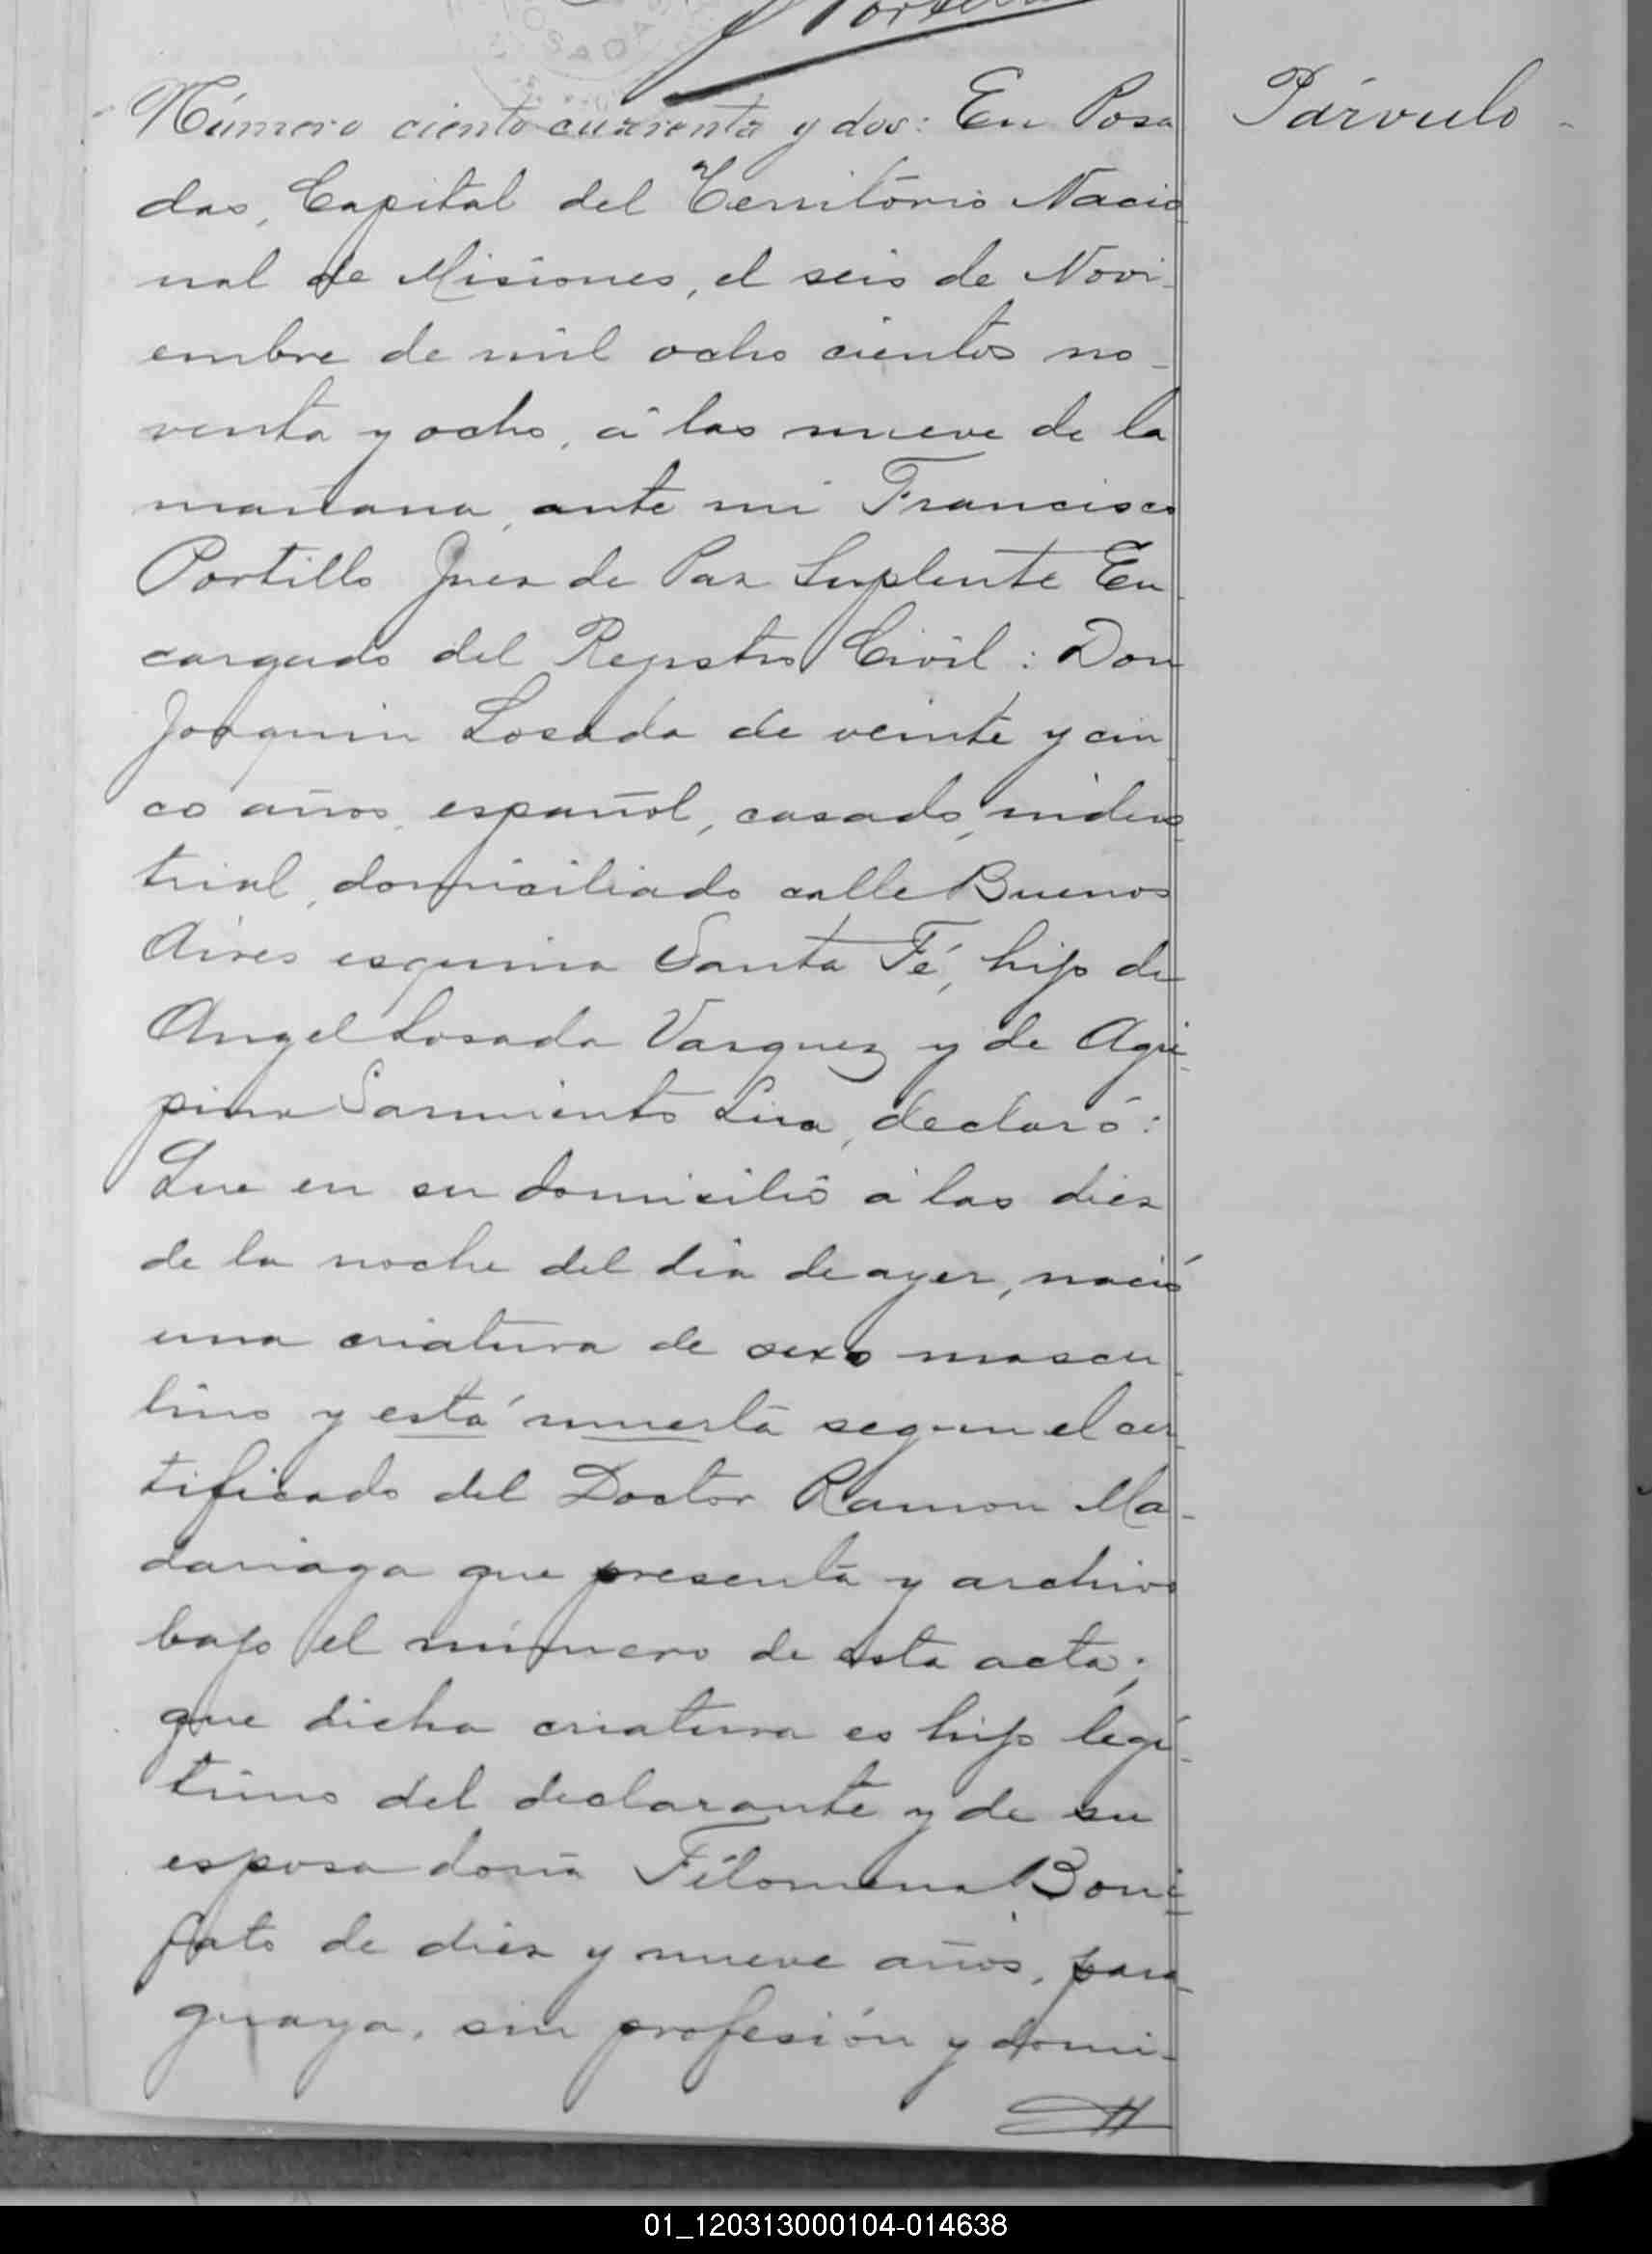 Portillo
Número ciento cuarenta y dos: En Posa
Párvulo
das, Capital del Território Nacio
nal de Misiones, el seis de Novi
embre de mil ocho cientos no-
venta y ocho, á las nueve de la
mañana, ante mi Francisco
Portillo Juez de Paz Suplente En
cargado del Registro Civil: Don
Joaquin Losada de veinte y cin
co años, español, casado, indus
trial, domiciliado calle Buenos
Aires esquina Santa Fé, hijo de
Angel Losada Vazquez y de Agri
pina Sarmiento, declaró:
Que en su domicilio á las diez
de la noche del dia de ayer, nació
una criatura de sexo mascu
lino y está muerta segun el cer
tificado del Doctor Ramon Ma-
dariaga que presenta y archivo
bajo el número de esta acta;
que dicha criatura es hijo legí
timo del declarante y de su
esposa doña Filomena Boni
fato de diez y nueve años, para
guaya, sin profesión y domi-
01_120313000104-014638